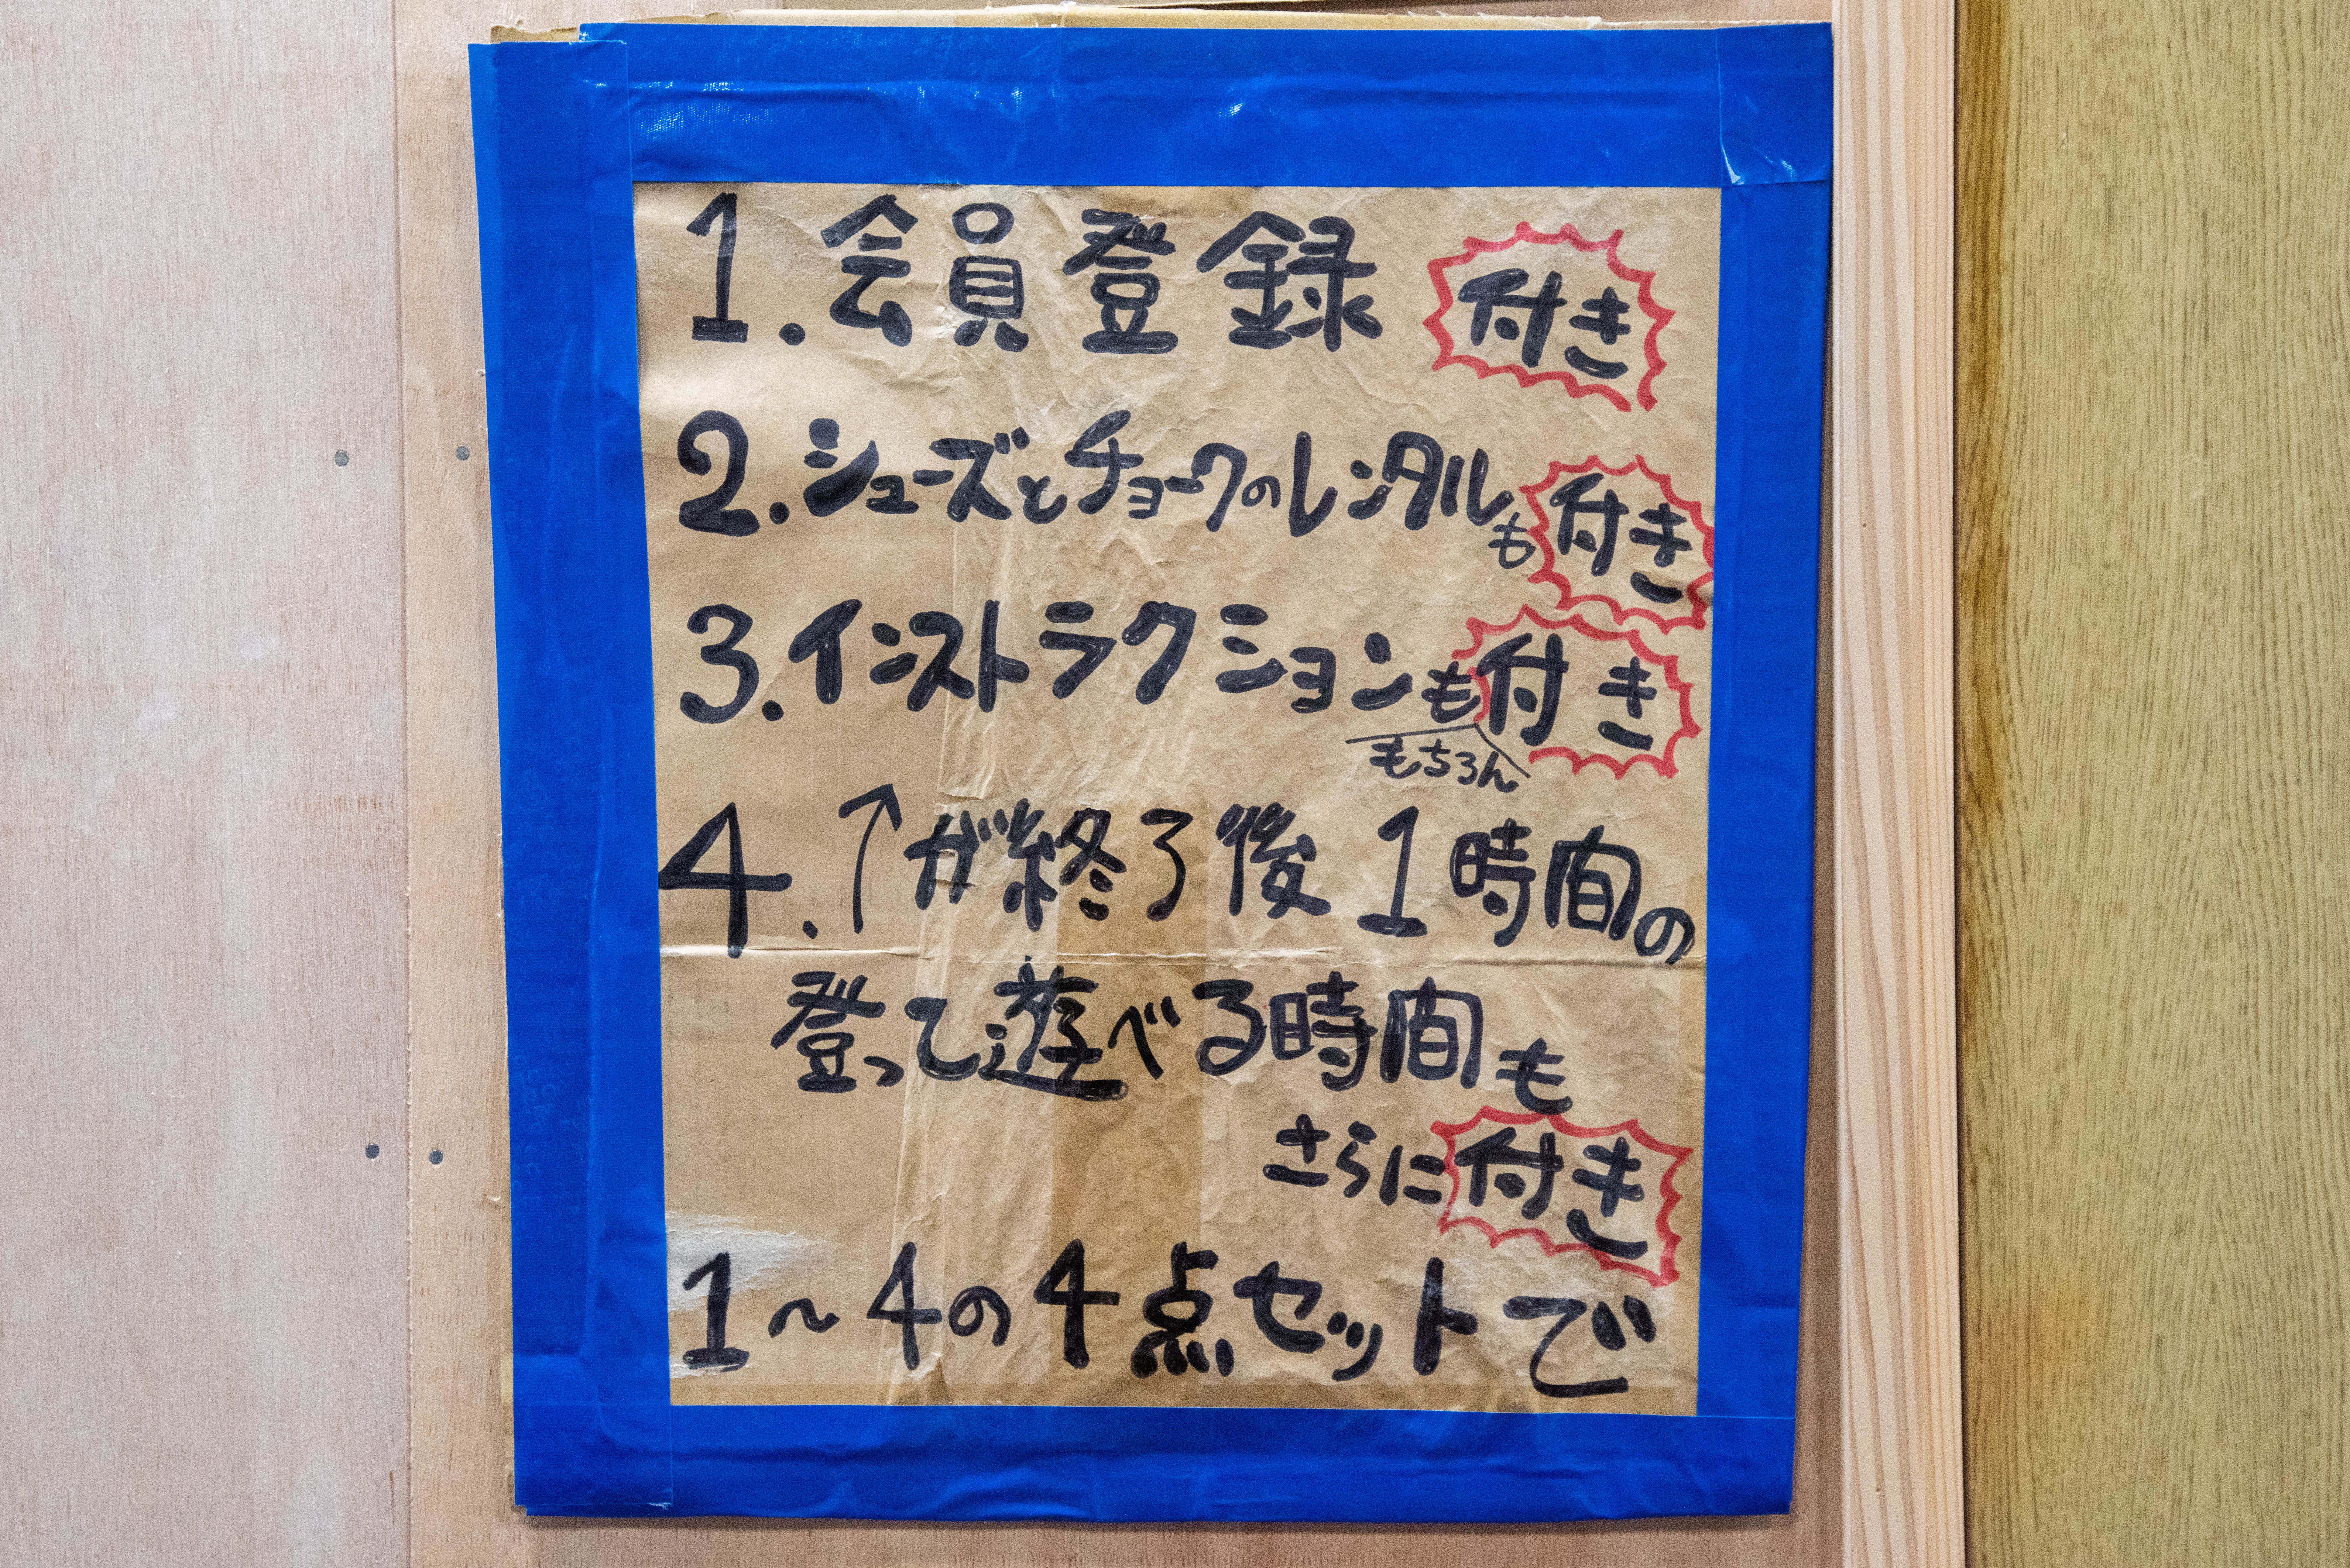 1.会員登録 付き
2.シューズとチョークのレンタルも付き
3.インストラクションも付き
もちろん
4.↑が終了後1時間の
登って遊べる時間も
さらに付き
1～4の4点セットで